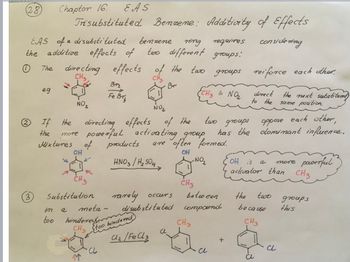 28 Chapter 16 E.A.S
Trisubstituted Benzene: Additivity of Effects
EAS of a disubstituted benzene ring requires considering
the additive effects of two different groups:
① The directing effects of the two groups reiforce each other.
CH3
CH3
eg
Br2
FeBr3
Br
CH3 & NO2 direct the next substituent
to the same position.
NO2
NO2
② If the directing effects of the two groups oppose each other,
the more powerful activating group has the dominant influence.
Mixtures of products are often formed.
OH
OH
HNO3 / H2SO4
NO2
OH is a more powerful
activator than CH3
CH3
CH3
③ Substitution rarely occurs between the two groups
in a meta-disubstituted compound because this
too hindered
CH3
too hindered
Cl2 / FeCl3
CH3
CH3
Cl
Cl
Cl
+
Cl
Cl